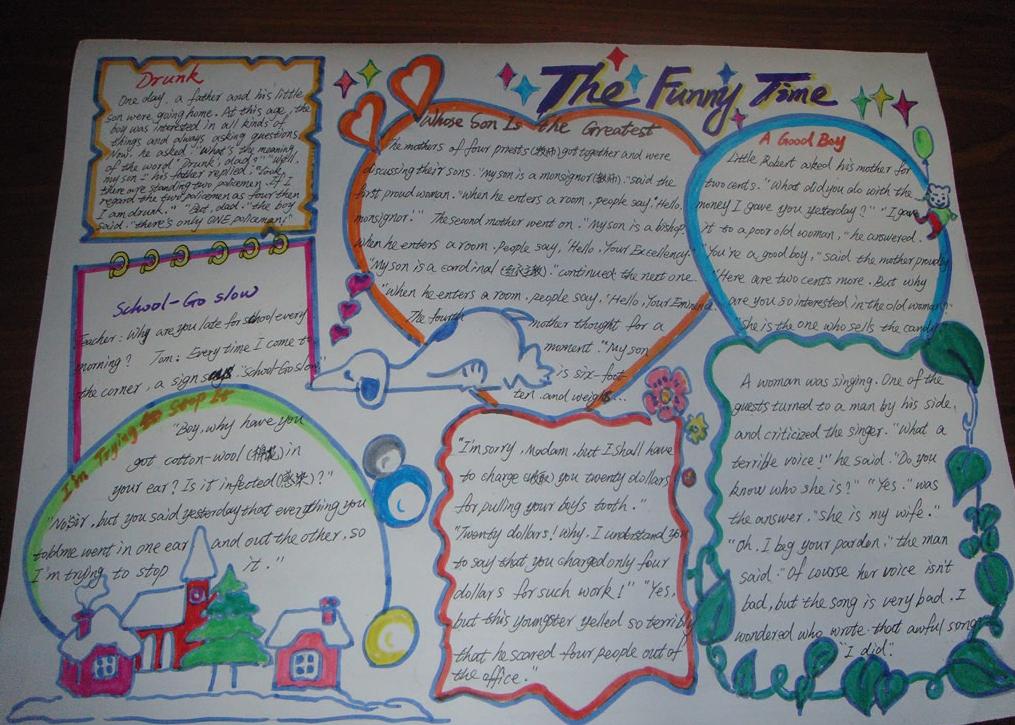 The Funny Time
Drunk
One day, a father and his little
son were going home. At this age, the
boy was interested in all kinds of
things and always asking questions.
Now, he asked "What's the meaning
of the word 'Drunk', dad?" "Well,
my son," his father replied. "Look,
there are standing two policemen. If I
regard the two policemen as four then
I am drunk." "But, dad," the boy
said. "there's only ONE policeman!"
School-Go slow
Teacher: Why are you late for school every
morning? Tom: Every time I come to
the corner, a sign says "School-Go slow"
I'm Trying to Stop It
"Boy, why have you
got cotton-wool (棉花) in
your ear? Is it infected (感染)?"
"No Sir, but you said yesterday that everything you
told me went in one ear and out the other, so
I'm trying to stop it."
Whose Son Is the Greatest
The mothers of four priests (教师) got together and were
discussing their sons. "My son is a monsignor," said the
first proud woman. "when he enters a room, people say, "Hello,
monsignor!" The second mother went on. "My son is a bishop.
When he enters a room, people say, "Hello, Your Excellency."
"My son is a cardinal." continued the next one.
"When he enters a room, people say, "Hello, Your Eminence
The fourth mother thought for a
moment. "My son
is six-foot-
ten and weighs...
A Good Boy
Little Robert asked his mother for
two cents. "What did you do with the
money I gave you yesterday?" "I gave
it to a poor old woman," he answered.
"You're a good boy," said the mother proudly
"Here are two cents more. But why
are you so interested in the old woman?
She is the one who sells the candy
"I'm sorry, Madam, but I shall have
to charge you twenty dollars
for pulling your boy's tooth."
"Twenty dollars! Why, I understand you
to say that you charged only four
dollars for such work!" "Yes,
but this youngster yelled so terribly
that he scared four people out of
the office."
A woman was singing. One of the
guests turned to a man by his side,
and criticized the singer. "What a
terrible voice!" he said. "Do you
know who she is?" "Yes." was
the answer. "she is my wife."
"Oh, I beg your pardon," the man
said. "Of course her voice isn't
bad, but the song is very bad. I
wondered who wrote that awful song
"I did".